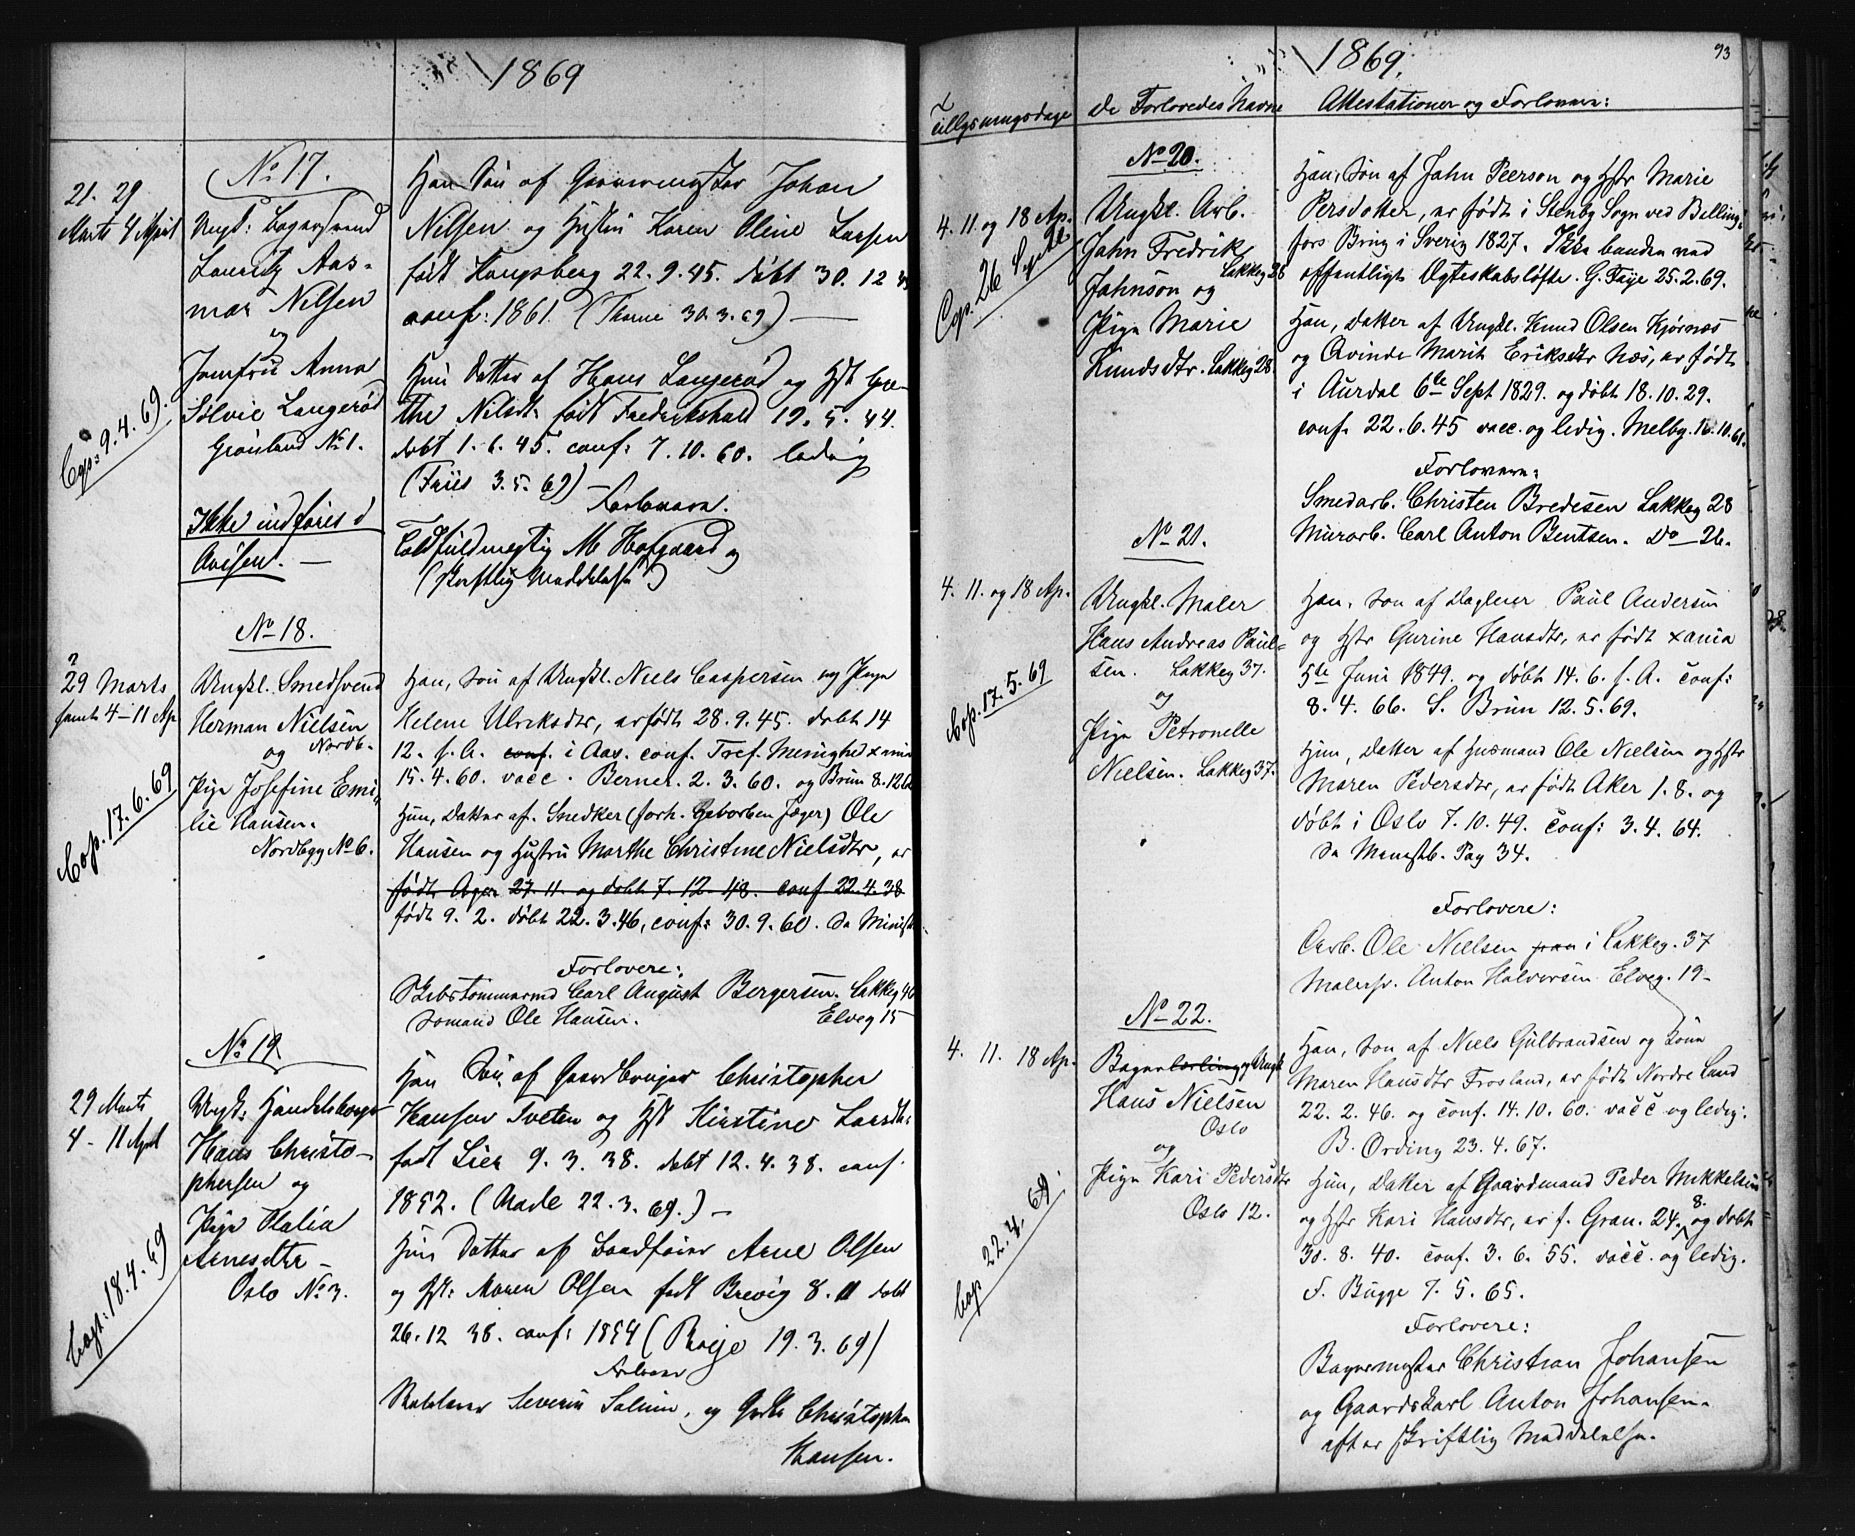 1869
No 17.
21. 29
Marts 4 April
Ungk: Bagersvend
Lauritz Aas-
mar Nilsen
og
Jomfru Anna
Sølvie Langerød
Grønland No 1.
Ikke indføres i
Avisen. —
Cop: 9.4.69.
Han Søn af Johan
Nilsen og Hustru Karen Oline Larsen
født Kongsberg 22.9.45. døbt 30.12
conf: 1861. (Thorne 30.3.69) —
Hun Datter af Hans Langerød og Hst
Nilsdt: født Fredrikshald 19.5.44.
døbt 1.6.45. conf: 7.10.60. ledig
(Friis 3.5.69) —
Forlovere.
Toldfuldmegtig M Hofgaard og
(skriftlig Meddelelse)
No 18.
29 Marts
samt 4-11 Ap
Ungkl. Smedsvend
Herman Nielsen
og Nordb.
Pige Josefine Emi-
lie Hansen.
Nordbyg No 6.
Cop. 17.6.69
Han, Søn af Ungkl. Niels Caspersen og Pige
Helene Ulriksdtr, er født 28.9.45. døbt 14
12. s.A. conf. i Aas. conf. Tref. Menighed
15.4.60. vacc. Berner. 2.3.60. og Brun 8.12
Hun, Datter af Snedker (forh. Jæger) Ole
Hansen og Hustru Marthe Christine Nielsdtr, er
født Ager 27.11. og døbt 7.12 48. conf 22.4.38
født 9.2. døbt 22.3.46, conf: 30.9.60. Se Minist
Forlovere:
Skibstømmermd Carl August Bergersen. Lakkeg 40
Sømand Ole Hansen. Elveg 15
No 19
29 Marts
4-11 April
Ungk: Handelsborger
Hans Christo-
phersen og
Pige Thalia
Arnesdtr —
Oslo No 3.
Copt: 18.4.69
Han Søn af Gaardbruger Christopher
Hansen Tveten og Hst Kirstine Larsdt:
født Lier 9.3.38. døbt 12.4.38. conf.
1852. (Made 22.3.69.) —
Hun Datter af Arne Olsen
og Hst: Maren Olsen født Brevig 8.11 døbt
26.12 38. conf: 1854 (Boije 19.3.69)
Forlovere
Severin Salum, og Christopher
Hansen.
1869. 93
Tillysningsdage De Forlovedes Navne Attestationer og Forlovere:
No 20.
4. 11. og 18 Ap.
Ungkl. Arb.
Jahn Fredrik
Lakkeg 26
Jahnson og
Pige Marie
Knudsdtr. Lakkeg 28
Cop. 26
Han, Søn af Jahn Peerson og Hstr Marie
Persdotter, er født i Stenby Sogn ved Billing-
fors Brug i Sverig 1827. Ikke bunden ved
offentligt Ægteskabsløfte. G. Faye 25.2.69.
Hun, Datter af Ungkl. Knud Olsen Kjørnæs
og Qvinde Marit Eriksdtr Næs, er født
i Aurdal 6te Sept 1829. og døbt 18.10.29.
conf. 22.6.45 vacc. og ledig. Melby. 16.10.61.
Forlovere:
Smedarb. Christen Bredesen Lakkeg 28
Murarb. Carl Anton Bentsen. Do — 26.
No 21.
4. 11. og 18 Ap.
Ungkl. Maler
Hans Andreas Paul-
sen. Lakkeg 37.
og
Pige Petronelle
Nielsen. Lakkeg 37.
Cop. 17.5.69
Han, Søn af Dagleier Paul Andersen
og Hstr Gurine Hansdtr, er født Xania
5te Juni 1849. og døbt 14.6. s.A. conf:
8.4.66. S. Brun 12.5.69.
Hun, Datter af Husmand Ole Nielsen og Hstr
Maren Pedersdtr, er født Aker 1.8. og
døbt i Oslo 7.10.49. conf: 3.4.64.
Se Menistb. Pag 34.
Forlovere:
Arb. Ole Nielsen i Lakkeg. 37
Malersv. Anton Halvorsen Elveg. 19 —
No 22.
4. 11. 18 Ap.
Bagerlærling og Ungk
Hans Nielsen
Oslo
og
Pige Kari Pedersdtr
Oslo 12.
Cop 22.4.69.
Han, Søn af Niels Gulbrandsen og Kone
Maren Hansdtr Frosland, er født Nordre Land
22.2.46. og conf. 14.10.60. vacc og ledig.
B. Ording 23.4.67.
Hun, Datter af Gaardmand Peder Mikkelsen
og Hstr Kari Hansdtr, er f. Gran. 24. 8. og døbt
30.8.40. conf. 3.6.55. vacc. og ledig.
F. Bugge 7.5.65.
Forlovere:
Bagermester Christian Johansen
og Gaardskarl Anton Johansen.
efter skriftlig Meddelelse.